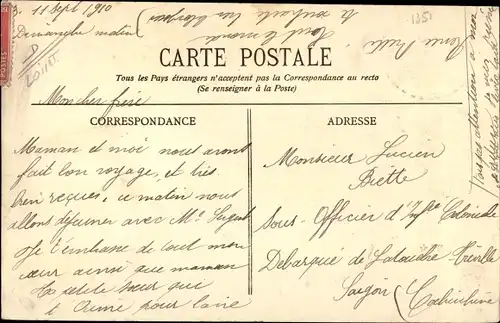 11 Sept 1910
Dimanche matin
CARTE POSTALE
Tous les Pays étrangers n'acceptent pas la Correspondance au recto
(Se renseigner à la Poste)
Mon cher frère
CORRESPONDANCE
Maman et moi nous avons
fait bon voyage, et très
bien reçues, ce matin nous
allons déjeuner avec Mr
Je t'embrasse de tout mon
cœur ainsi que maman
Ta petite sœur qui
t'aime pour la vie
ADRESSE
Monsieur Lucien
Biette
Sous-Officier d'Infie Coloniale
Débarqué de Latouche-Tréville
Saïgon (Cochinchine
tout le monde
te souhaite